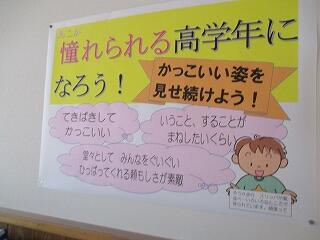 憧れられる高学年に
なろう！
かっこいい姿を
見せ続けよう！
てきぱきして
かっこいい
いうこと、することが
まねしたいくらい
堂々として みんなをぐいぐい
ひっぱってくれる頼もしさが素敵